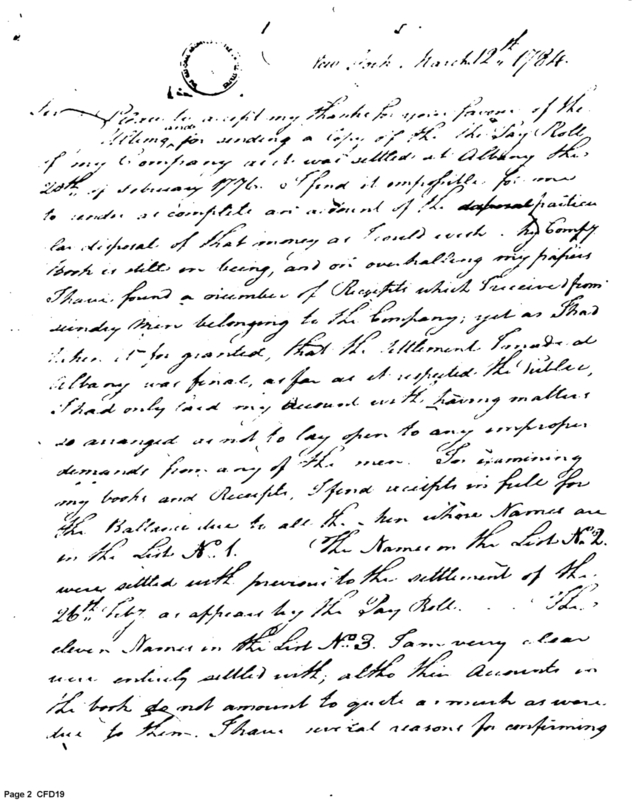 New York. March 12th 1784.
Sir
Please to accept my thanks for your favour of the
and
for sending a Copy of the the Pay Roll
of my Company as it was settled at Albany the
20th of February 1776. I find it impossible for me
to render as complete an account of the disposal particu
lar disposal of that money as I could wish. My Compy
Book is still in being, and on overhalling my papers
I have found a number of Receipts which I received from
sundry Men belonging to the Company; yet as I had
taken it for granted, that the settlement I made at
Albany was final, as far as it respected the Public,
I had only laid my account with having matters
so arranged as not to lay open to any improper
demands from any of the men. In examining
my books and Receipts, I find receipts in full for
the Ballance due to all the Men whose Names are
in the List No. 1. The Names in the List No. 2.
were settled with previous to the settlement of the
26th Feby as appears by the Pay Roll. The
eleven Names in the List No. 3. I am very clear
were entirely settled with; altho their Accounts in
the book do not amount to quite as much as were
due to them. I have several reasons for confirming
Page 2 CFD19